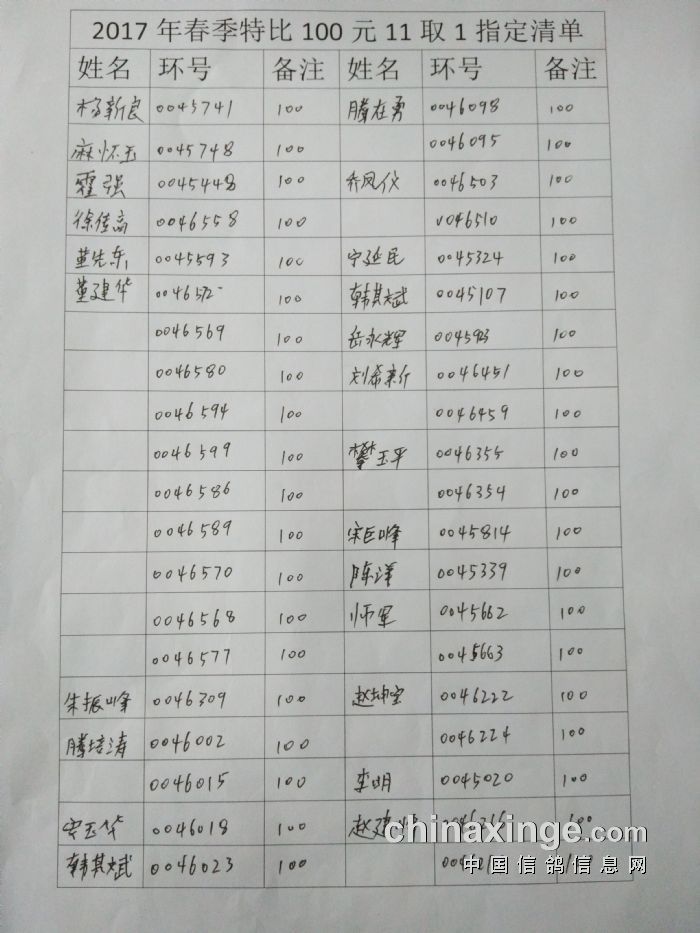 2017年春季特比100元11取1指定清单
姓名 环号 备注 姓名 环号 备注
杨新良 0045741 100 腾在勇 0046098 100
麻怀玉 0045748 100 0046095 100
霍强 0045448 100 乔凤仪 0046503 100
徐佳高 0046558 100 0046510 100
董先东 0045593 100 宁延民 0045324 100
董建华 100 韩其斌 0045107 100
0046569 100 岳永辉 100
0046580 100 刘希 0046451 100
0046594 100 0046459 100
0046599 100 攀玉平 0046355 100
0046586 100 0046354 100
0046589 100 宋巨峰 0045814 100
0046570 100 陈洋 0045339 100
0046568 100 师军 0045662 100
0046577 100 0045663 100
朱振峰 0046309 100 赵坤宝 0046222 100
腾培涛 0046002 100 0046224 100
0046015 100 李明 0045020 100
安玉华 0046018 100 赵建 100
韩其斌 0046023 100
chinaxinge.com
中国信鸽信息网